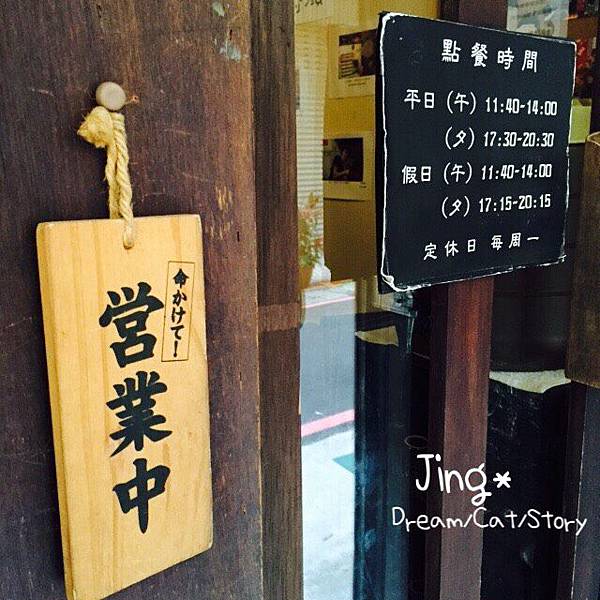 命かけて!
営業中
點餐時間
平日 (午) 11:40-14:00
(夕) 17:30-20:30
假日 (午) 11:40-14:00
(夕) 17:15-20:15
定休日 每周一
Jing*
Dream/Cat/Story